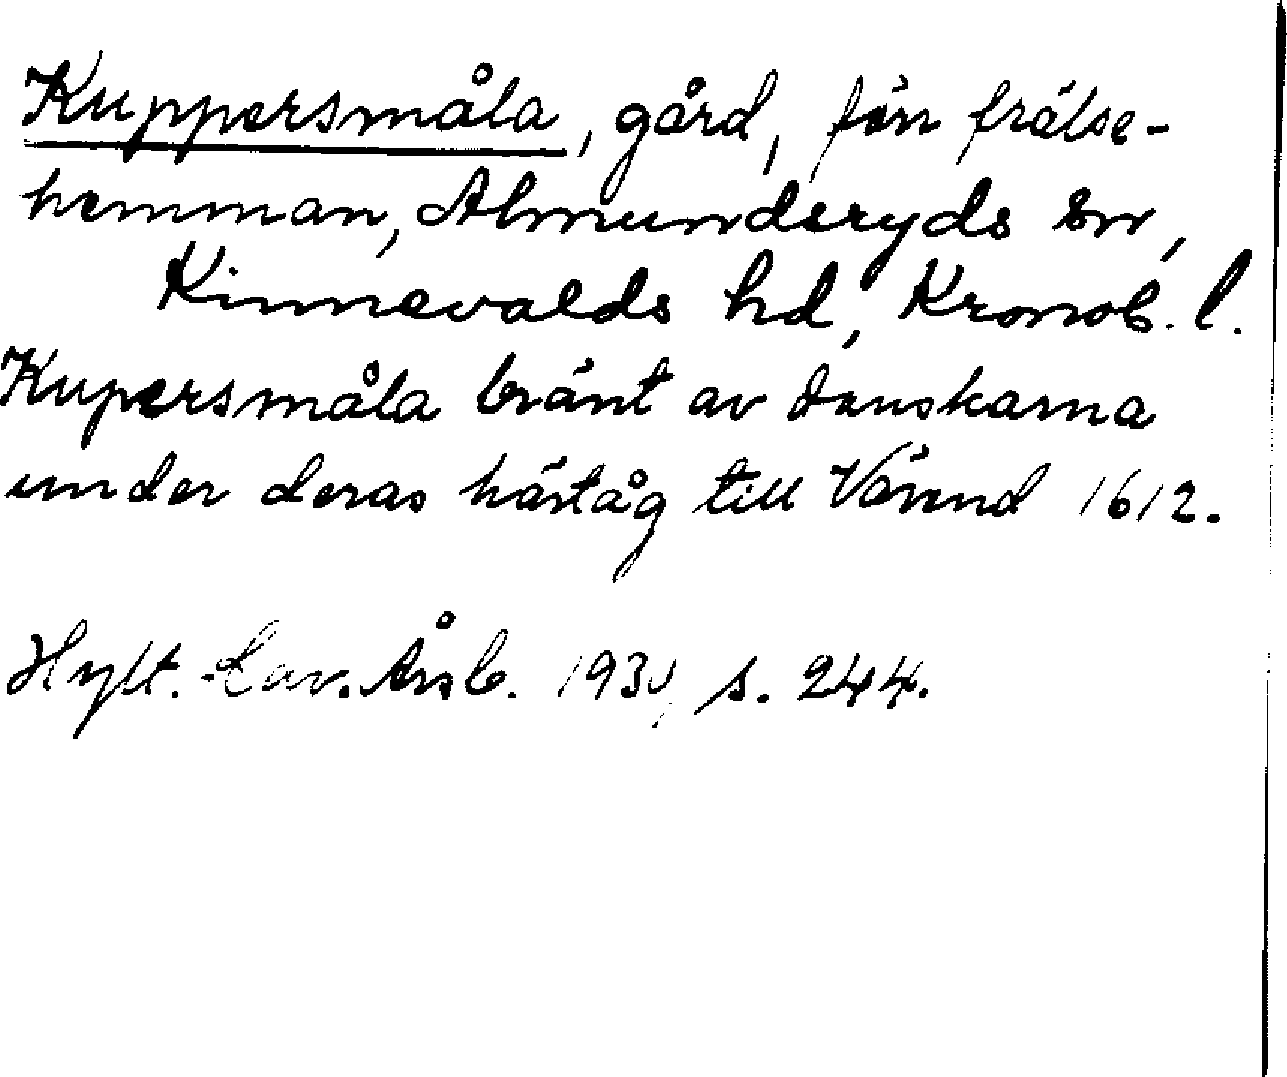 Kuppersmåla, gård, förr frälse-
hemman, Almundsryds sn,
Kinnevalds hd, Kronob. l.
Kupersmåla bränt av danskarna
under deras härtåg till Värend 1612.
Hylt.-Cav. Årsb. s. 244.